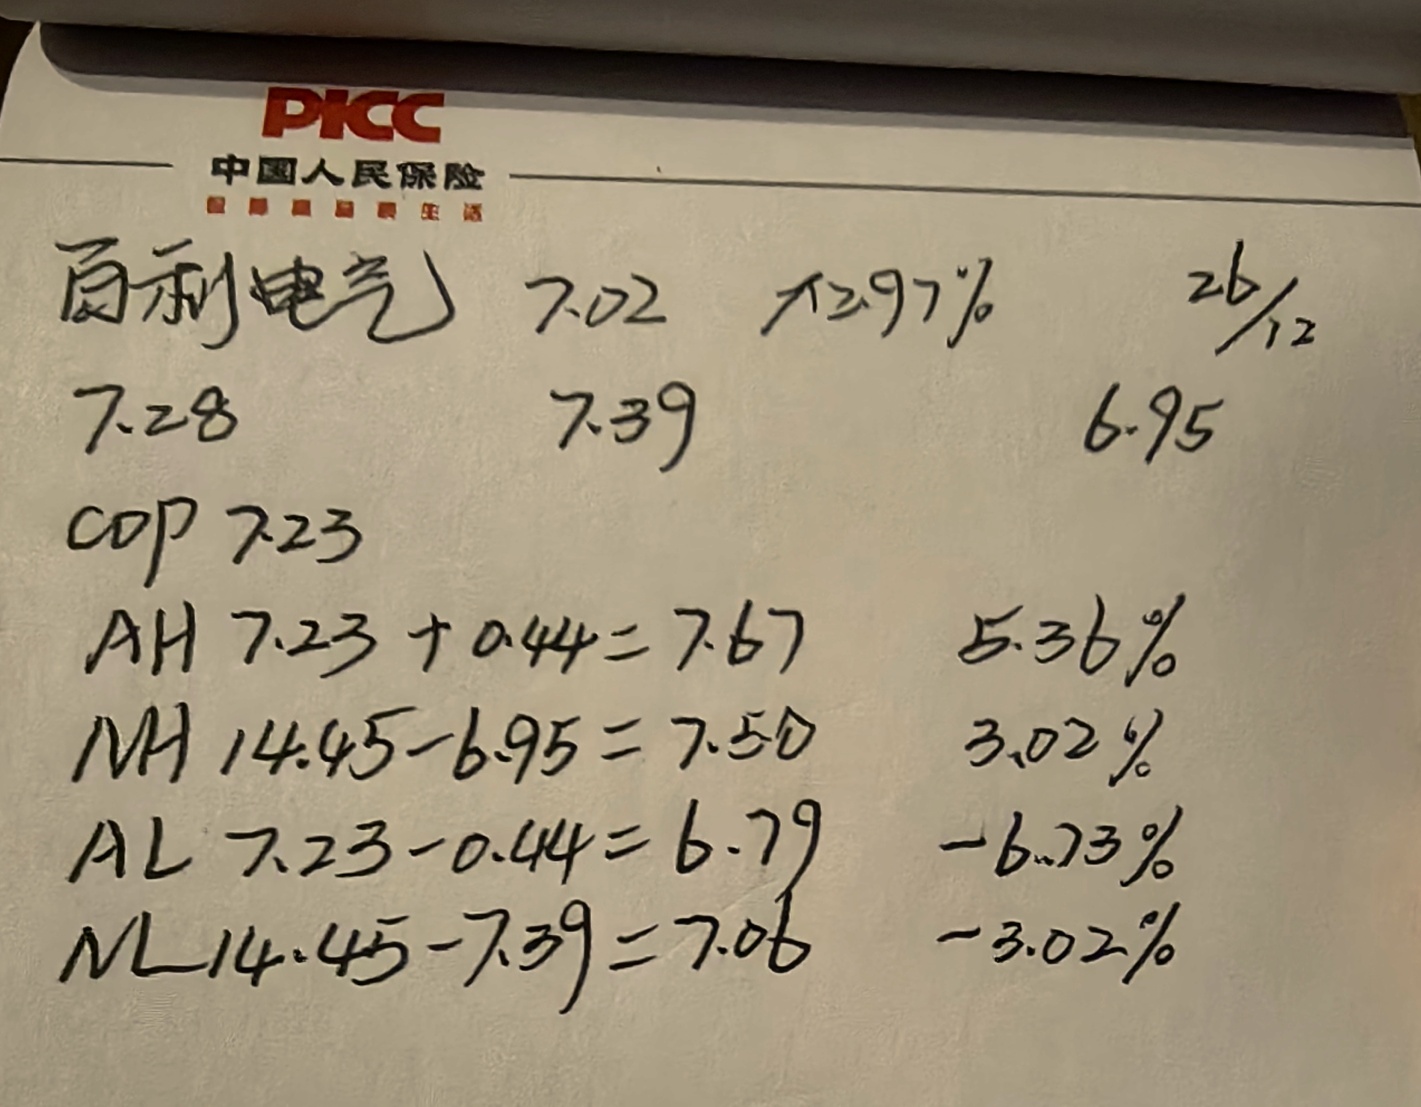 PICC
中国人民保险
百利电气 7.02 +2.97% 26/12
7.28 7.39 6.95
CDP 7.23
AH 7.23 + 0.44 = 7.67 5.36%
NH 14.45 - 6.95 = 7.50 3.02%
AL 7.23 - 0.44 = 6.79 -6.73%
NL 14.45 - 7.39 = 7.06 -3.02%